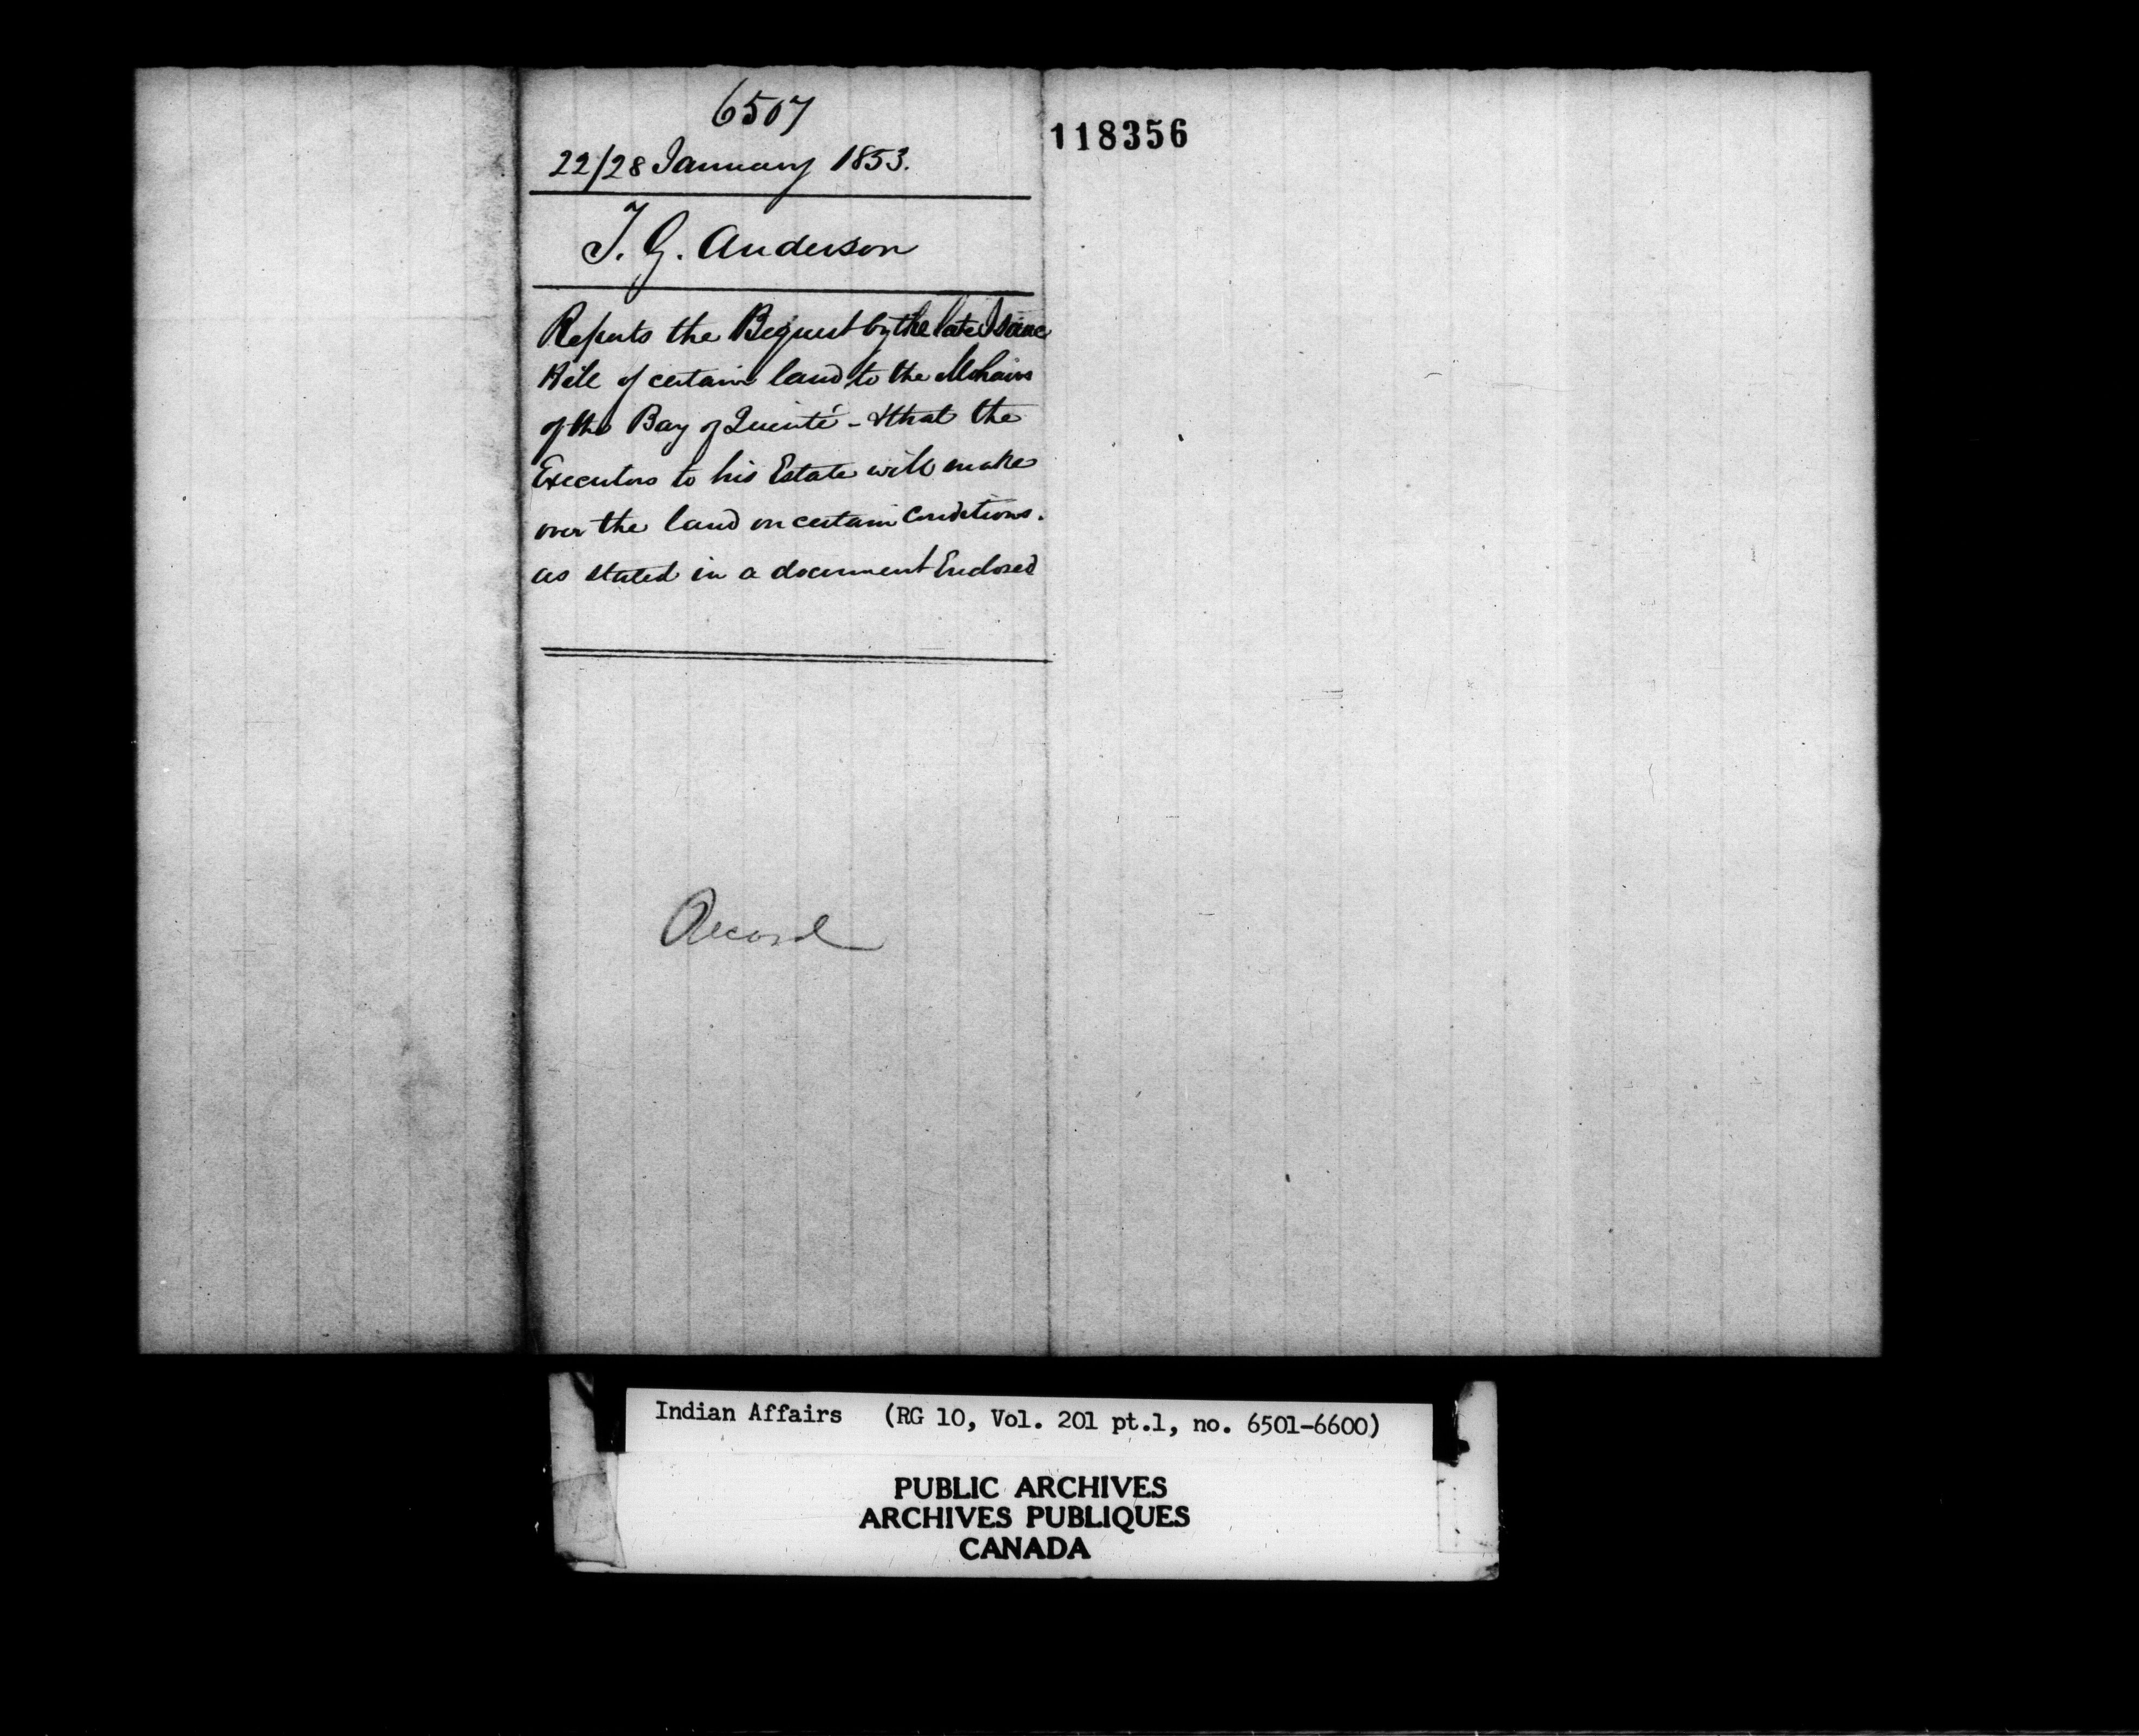 6507
118356
22/28 January 1853.
T. G. Anderson
Reports the Bequest by the late Isaac
Hill of certain land to the Mohawks
of the Bay of Quinté - & that the
Executors to his Estate will make
over the land on certain Conditions.
as stated in a document Enclosed
Record
Indian Affairs (RG 10, Vol. 201 pt.1, no. 6501-6600)
PUBLIC ARCHIVES
ARCHIVES PUBLIQUES
CANADA